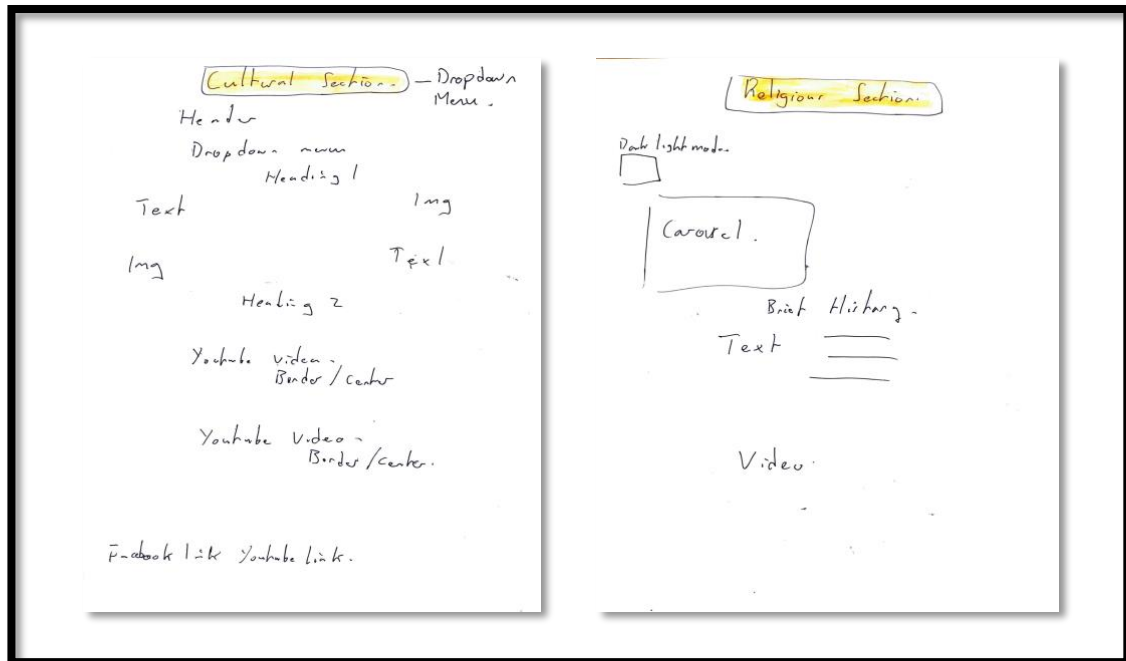 Cultural Section. – Dropdown
Menu.
Header
Dropdown menu
Heading 1
Text Img
Img Text
Heading 2
Youtube video -
Border / center
Youtube Video -
Border / center.
Facebook link Youtube link.
Religious Section.
Dark light mode.
Carousel.
Brief History.
Text
Video.